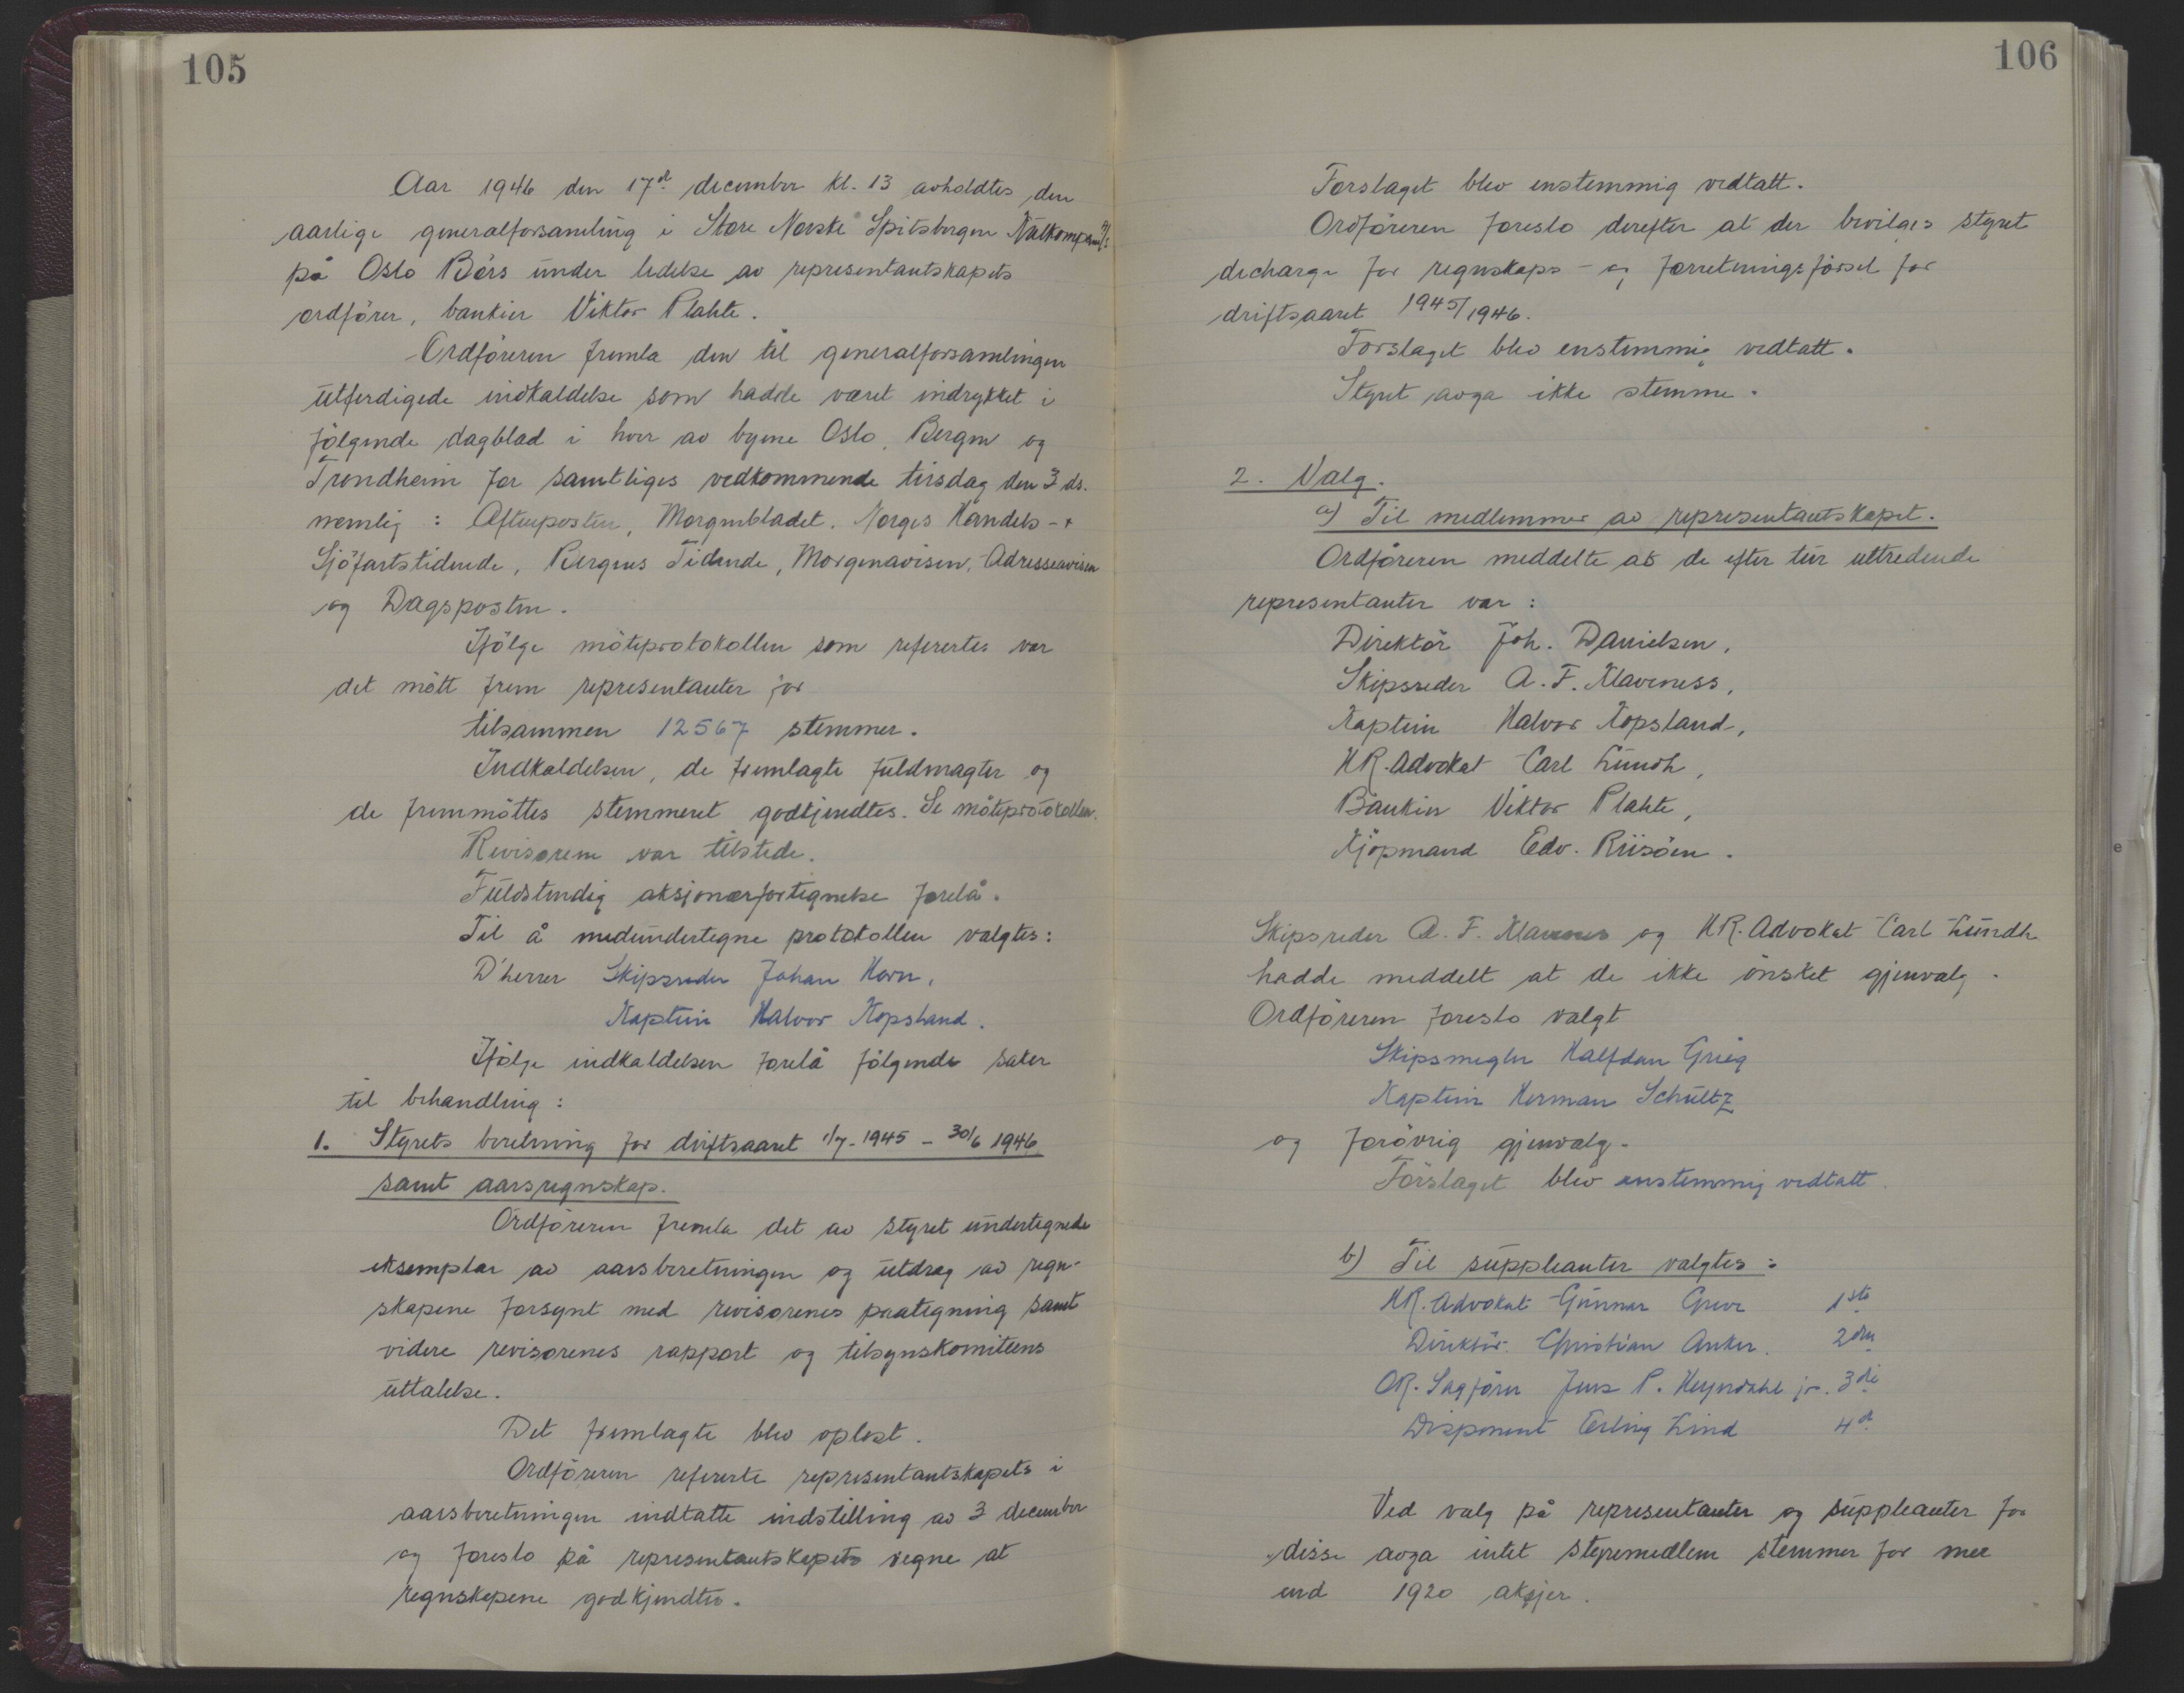 105
Aar 1946 den 17de december kl. 13 avholdtes den
aarlige generalforsamling i Store Norske Spitsbergen Kulkompani A/S
på Oslo Börs under ledelse av representantskapets
ordförer, bankier Viktor Plahte.
Ordföreren fremla den til generalforsamlingen
utferdigede indkaldelse som hadde været indrykket i
fölgende dagblad i hver av byene Oslo, Bergen og
Trondheim for samtliges vedkommende tirsdag den 3 ds.
nemlig : Aftenposten, Morgenbladet. Norges Handels- +
Sjöfartstidende, Bergens Tidende, Morgenavisen, Adresseavisen
og Dagsposten.
Ifölge möteprotokollen som refererte​s var
det mött frem representanter for
tilsammen 12567 stemmer.
Indkaldelsen, de fremlagte fuldmagter og
de fremmöttes stemmeret godkjendtes. Se möteprotokollen.
Revisorene var tilstede.
Fuldstendig aksjonærfortegnelse forelå.
Til å medundertegne protokollen valgtes:
D'herrer Skipsreder Johan Horn,
Kaptein Halvor Kopsland.
Ifölge indkaldelsen forelå fölgende saker
til behandling :
1. Styrets beretning for driftsaaret 1/7-1945 - 30/6 1946
samt aarsregnskap.
Ordföreren fremla det av styret undertegnede
eksemplar av aarsberetningen og utdrag av regn-
skapene forsynt med revisorenes paategning samt
videre revisorenes rapport og tilsynskomiteens
uttalelse.
Det fremlagte blev oplest.
Ordföreren refererte representantskapets i
aarsberetningen indtatte indstilling av 3 december
og foreslo på representantskapets vegne at
regnskapene godkjendtes.
106
Forslaget blev enstemmig vedtatt.
Ordföreren foreslo derefter at der bevilges styret
decharge for regnskaps- og forretningsförsel for
driftsaaret 1945/1946.
Forslaget blev enstemmig vedtatt.
Styret avga ikke stemme.
2. Valg.
a) Til medlemmer av representantskapet.
Ordföreren meddelte at de efter tur uttredende
representanter var :
Direktör Joh. Danielsen,
Skipsreder A. F. Klaveness,
Kaptein Halvor Kopsland,
HR. Advokat Carl Lundh,
Bankier Viktor Plahte,
Kjöpmand Edv. Riisöen.
Skipsreder A. F. Klaveness og HR. Advokat Carl Lundh
hadde meddelt at de ikke önsket gjenvalg.
Ordföreren foreslo valgt
Skipsmegler Halfdan Grieg
Kaptein Herman Schultz
og forövrig gjenvalg.
Forslaget blev enstemmig vedtatt.
b) Til suppleanter valgtes :
HR. Advokat Gunnar Greve 1ste
Direktör Christian Anker. 2den
OR. Sagförer Jens P. Heyerdahl jr. 3die
Disponent Erling Lind 4de
Ved valg på representanter og suppleanter for
disse avga intet styremedlem stemmer for mer
end 1920 aksjer.